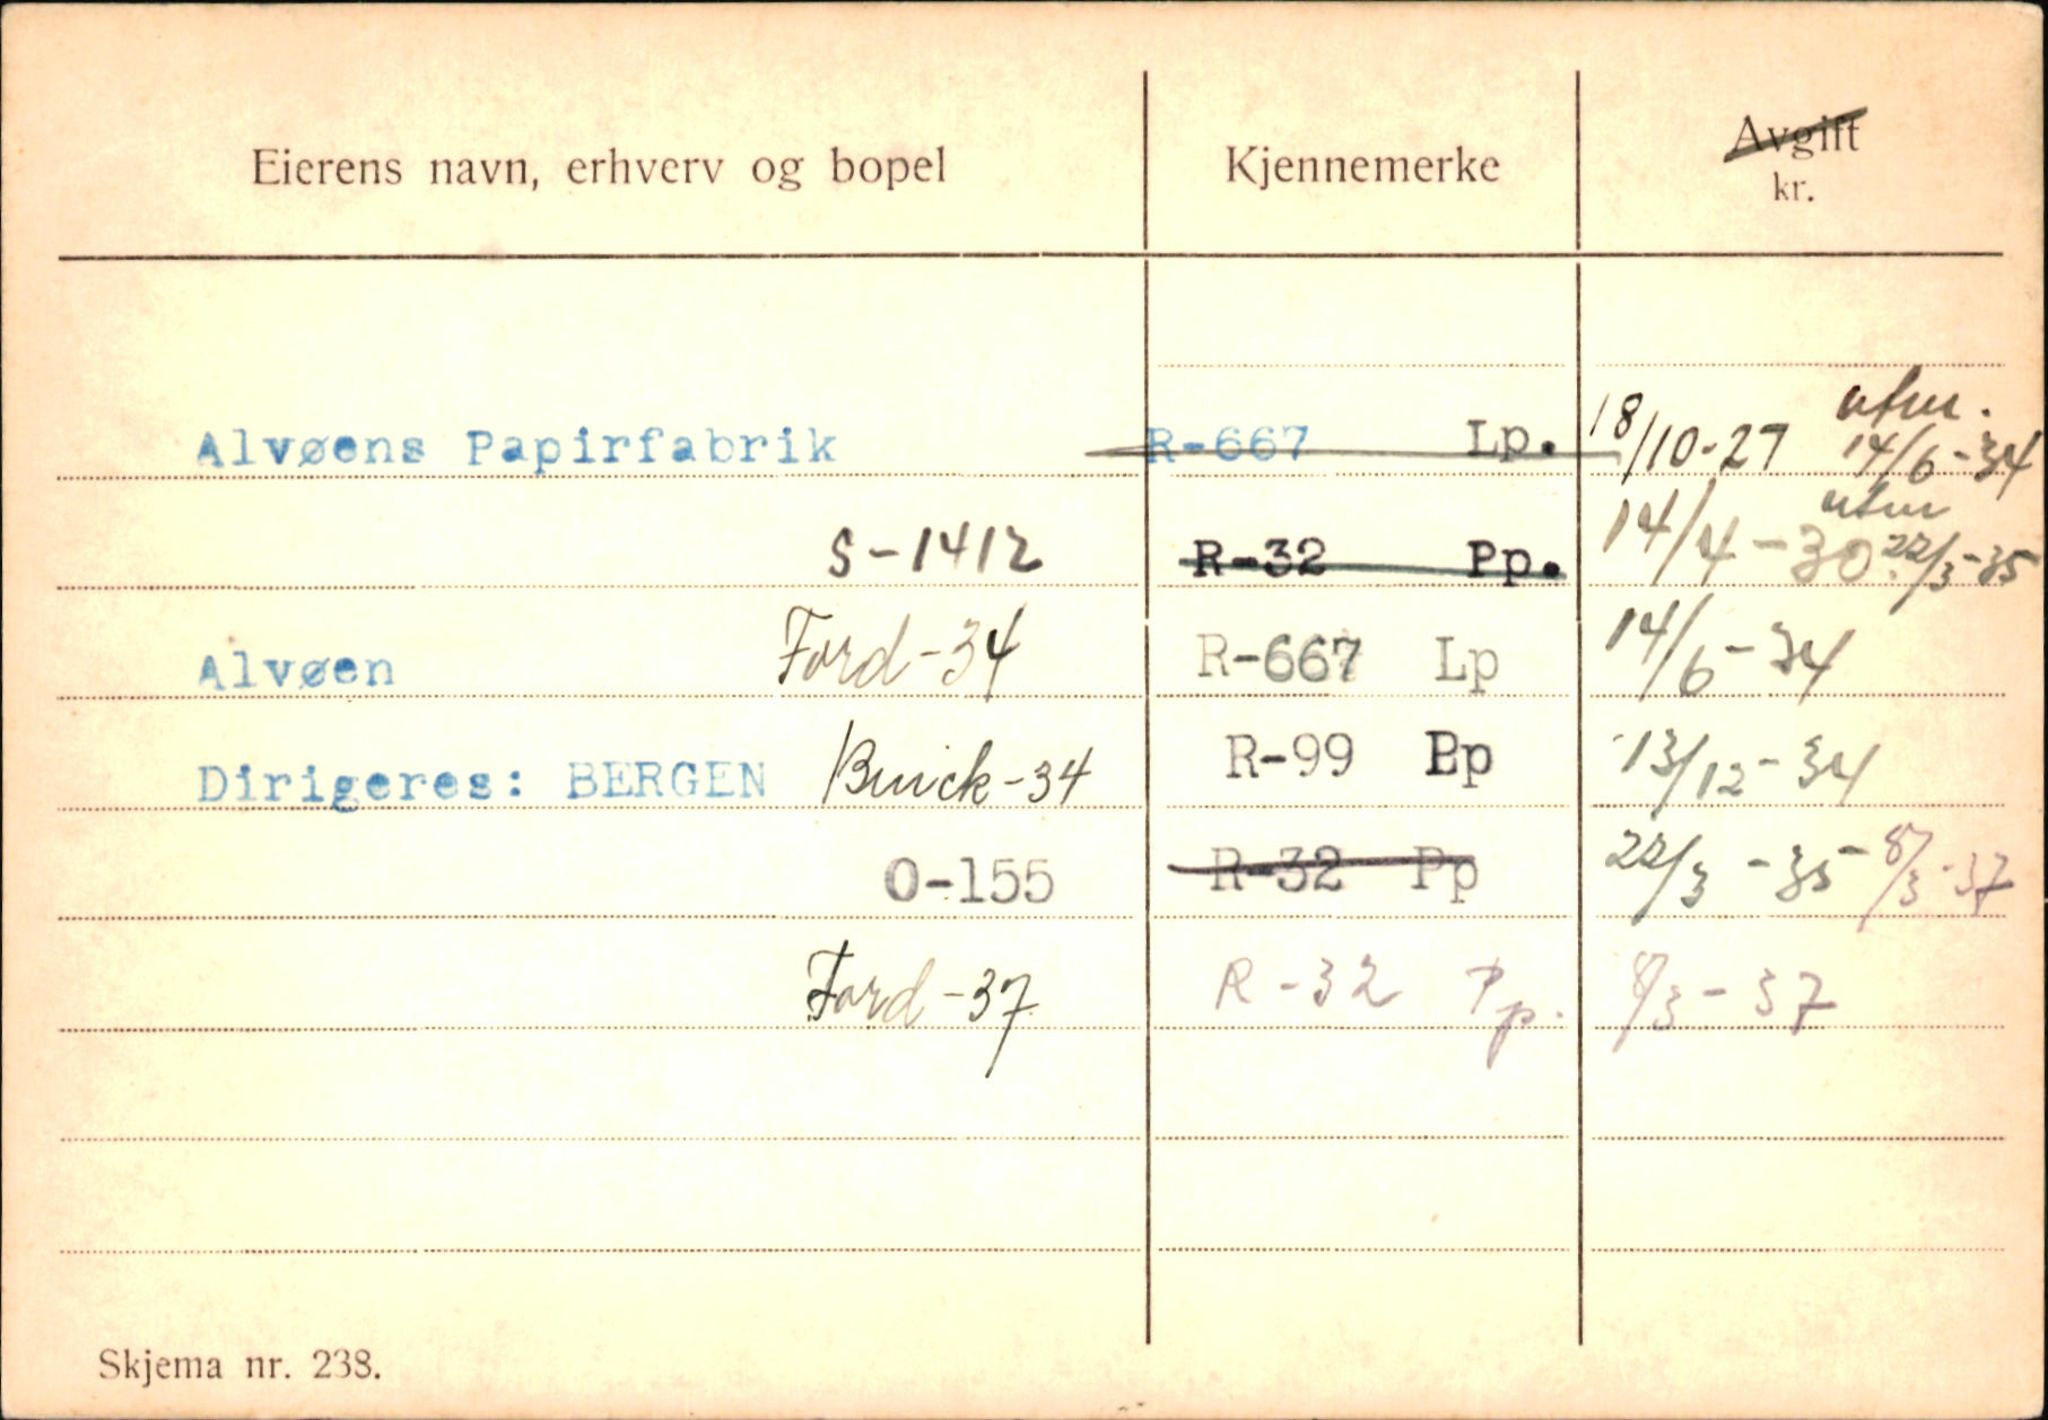 Eierens navn, erhverv og bopel Kjennemerke Avgift
kr.
Alvøens Papirfabrik R-667 Lp. 18/10-27 utm. 14/6-34
S-1412 R-32 Pp. 14/4-30 utm 22/3-35
Alvøen Ford-34 R-667 Lp 14/6-34
Dirigeres: BERGEN Buick-34 R-99 Bp 13/12-34
O-155 R-32 Pp 22/3-35 - 8/3-37
Ford-37 R-32 Pp. 8/3-37
Skjema nr. 238.